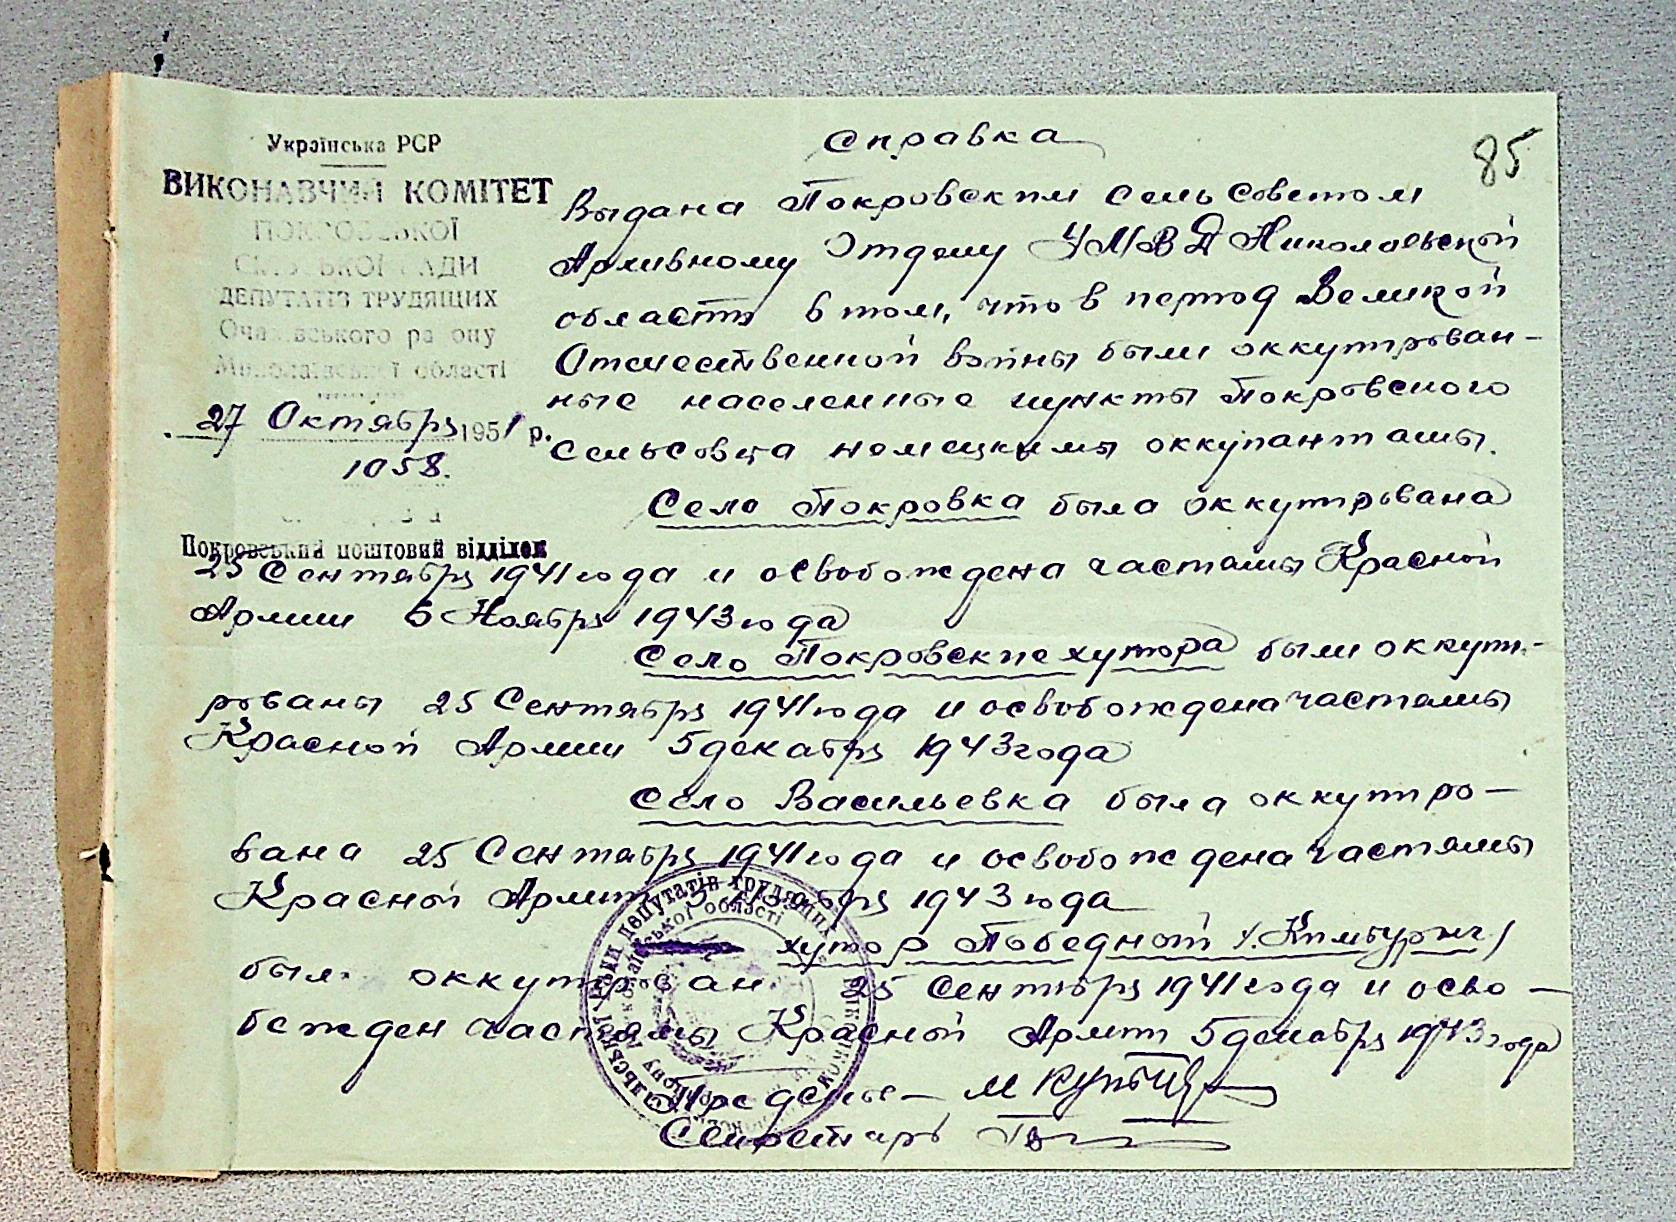 85
Українська РСР
ВИКОНАВЧИЙ КОМІТЕТ
ПОКРОВСЬКОЇ
СІЛЬСЬКОЇ РАДИ
ДЕПУТАТІВ ТРУДЯЩИХ
Очаківського району
Миколаївської області
27 Октября 1951 р.
1058.
Покровський поштовий відділок
Справка
Выдана Покровским сельсоветом
Архивному Отделу УМВД Николаевской
области в том, что в период Великой
Отечественной войны были оккупирован-
ные населенные пункты Покровского
сельсовета немецкими оккупантамы.
Село Покровка была оккупирована
25 Сентября 1941 года и освобождена частямы Красной
Армии 5 Ноября 1943 года
Село Покровские хутора были оккупи-
рованы 25 Сентября 1941 года и освобождена частямы
Красной Армии 5 декабря 1943 года
Село Васильевка была оккупиро-
вана 25 Сентября 1941 года и освобождена частямы
Красной Армии 5 декабря 1943 года
хутор Победный
был оккупирован 25 Сентября 1941 года и осво-
божден частямы Красной Армии 5 декабря 1943 года
Секретарь
депутатів трудящих
області